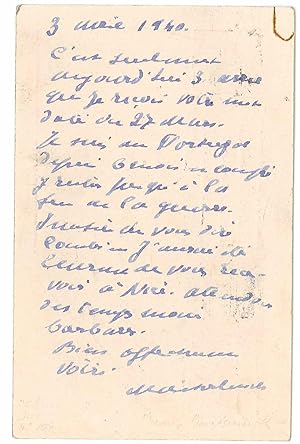 3 Mai 1940.
C'est seulement
aujourd'hui 3 
que je reçois votre mot
daté du 27 Mars.
Je suis au Portugal
depuis 6 mois
je reste jusqu'à la
fin de la guerre.
Inutile de vous dire
combien j'aurais été
heureux de vous rece-
voir à Nice. attendons
des temps moins
barbares.
Bien affectueusement
vôtre.
Maeterlinck